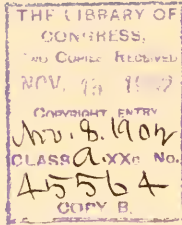 THE LIBRARY OF
CONGRESS,
TWO COPIES RECEIVED
NOV. 190
COPYRIGHT ENTRY
Nov. 8. 1902
CLASS a XXc No.
45564
COPY B.